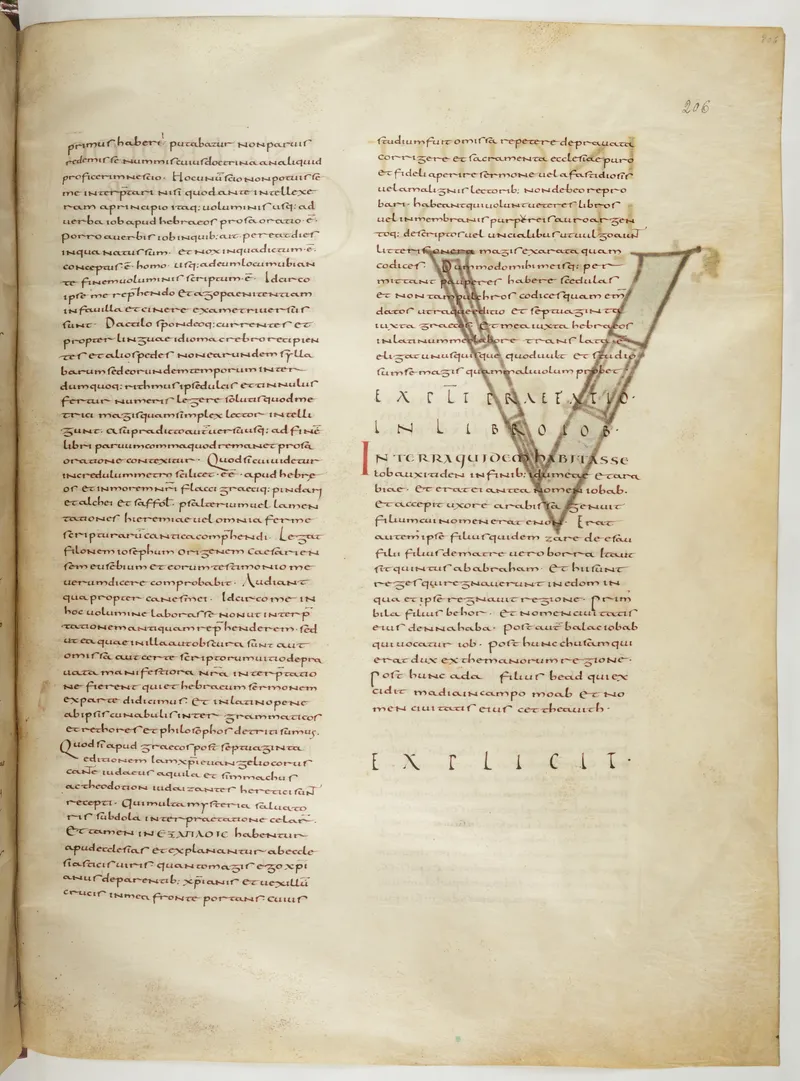 206
primus haberi putabatur non paruis
redemisse nummis cuius doctrina an aliquid
profecerim nescio. Hoc unu scio non potuisse
me interptari nisi quod ante intellexe
ram a principio itaq; uoluminis usq; ad
uerba iob apud hebraeos prosa oratio e.
porro a uerbis iob in quib; ait pereat dies
in qua natus sum. et nox in qua dictum e.
conceptus e homo. usq; ad eum locum ubi an
te finem uoluminis scriptum e. Idcirco
ipse me rephendo et ago paenitentiam
in fauilla et cinere exametri uersus
sunt. Dactilo spondeoq; currentes et
propter linguae idioma crebro recipien
tes et alios pedes non earundem sylla
barum sed eorundem temporum inter
dum quoq; rithmus ipse dulcis et tinnulus
fertur numeris legere solutis quod me
trici magis quam simplex lector intelli
gunt. a supradicto aut uersu usq; ad fine
libri paruum comma quod remanet prosa
oratione contexitur. Quod si cui uidetur
incredulum metro scilicet ee. apud hebre
os et in morem nri flacci graeciq; pindari
et alchei et saffo. psalterium uel lamen
tationes hieremiae uel omnia ferme
scripturaru cantica comphendi. Legat
filonem iosephum origenem caesarien
sem eusebium et eorum testimonio me
uerum dicere comprobabit. Audiant
qua propter canes mei. Idcirco me in
hoc uolumine laborasse non ut interp
tationem antiquam rephenderem. sed
ut ea quae in illa aut obscura sunt aut
omissa aut certe scriptorum uitio depra
uata manifestiora nra interptatio
ne fierent qui et hebraeum sermonem
ex parte didicimus et in latino pene
ab ipsis cunabulis inter grammaticos
et rethores et philosophos detriti sumus.
Quod si apud graecos post septuaginta
editionem iam xpi euangelio corus
cante iudaeus aquila et simmachus
ac theodotion iudaizantes heretici sunt
recepti. Qui multa mysteria saluato
ris subdola interpraetatione celar.
Et tamen in ΕΞΑΠΛΟΙC habentur
apud ecclesias et explanantur ab eccle
siasticis uiris quanto magis ego xpi
anus de parentib; xpianis et uexillu
crucis in mea fronte portans cuius
studium fuit omissa repetere deprauata
corrigere et sacramenta ecclesiae puro
et fideli aperire sermone uel a fastidiosis
uel a malignis lectorib; non debeo repro
bari. habeant qui uolunt ueteres libros
uel in membranis purpereis auro argen
toq; descriptos uel uncialibus ut uulgo aiunt
litteris onera magis exarata quam
codices. Dummodo mihi meisq; per
mittant pauperes habere scedulas
et non tam pulchros codices quam em
datos utraque editio et septuaginta
iuxta graecos. et mea iuxta hebraeos
in latinum meo labore translata e
eligat unusquisque quod uult et studio
sum se magis quam maliuolum probet
EXPLICIT PRAEFATIO.
IN LIBRO IOB.
IN TERRA QUIDEM HABITASSE
iob ausitiden in finib; idumeae et ara
biae. et erat ei antea nomen iobab.
et accepit uxore arabissa genuit
filium cui nomen erat enon. Erat
autem ipse filius quidem zare de esau
filii filius de matre uero borra Ita ut
sit quintus ab abraham. et hi sunt
reges qui regnauerunt in edom in
qua et ipse regnauit regione. Prim
bila filius behor. et nomen ciuitatis
eius dennahaba. post aute balac iobab
qui uocatur iob. post hunc chusam qui
erat dux ex themanorum regione.
Post hunc ada filius bead qui ex
cidit madia in campo moab et no
men ciuitatis eius cetcheauith.
EXPLICIT.